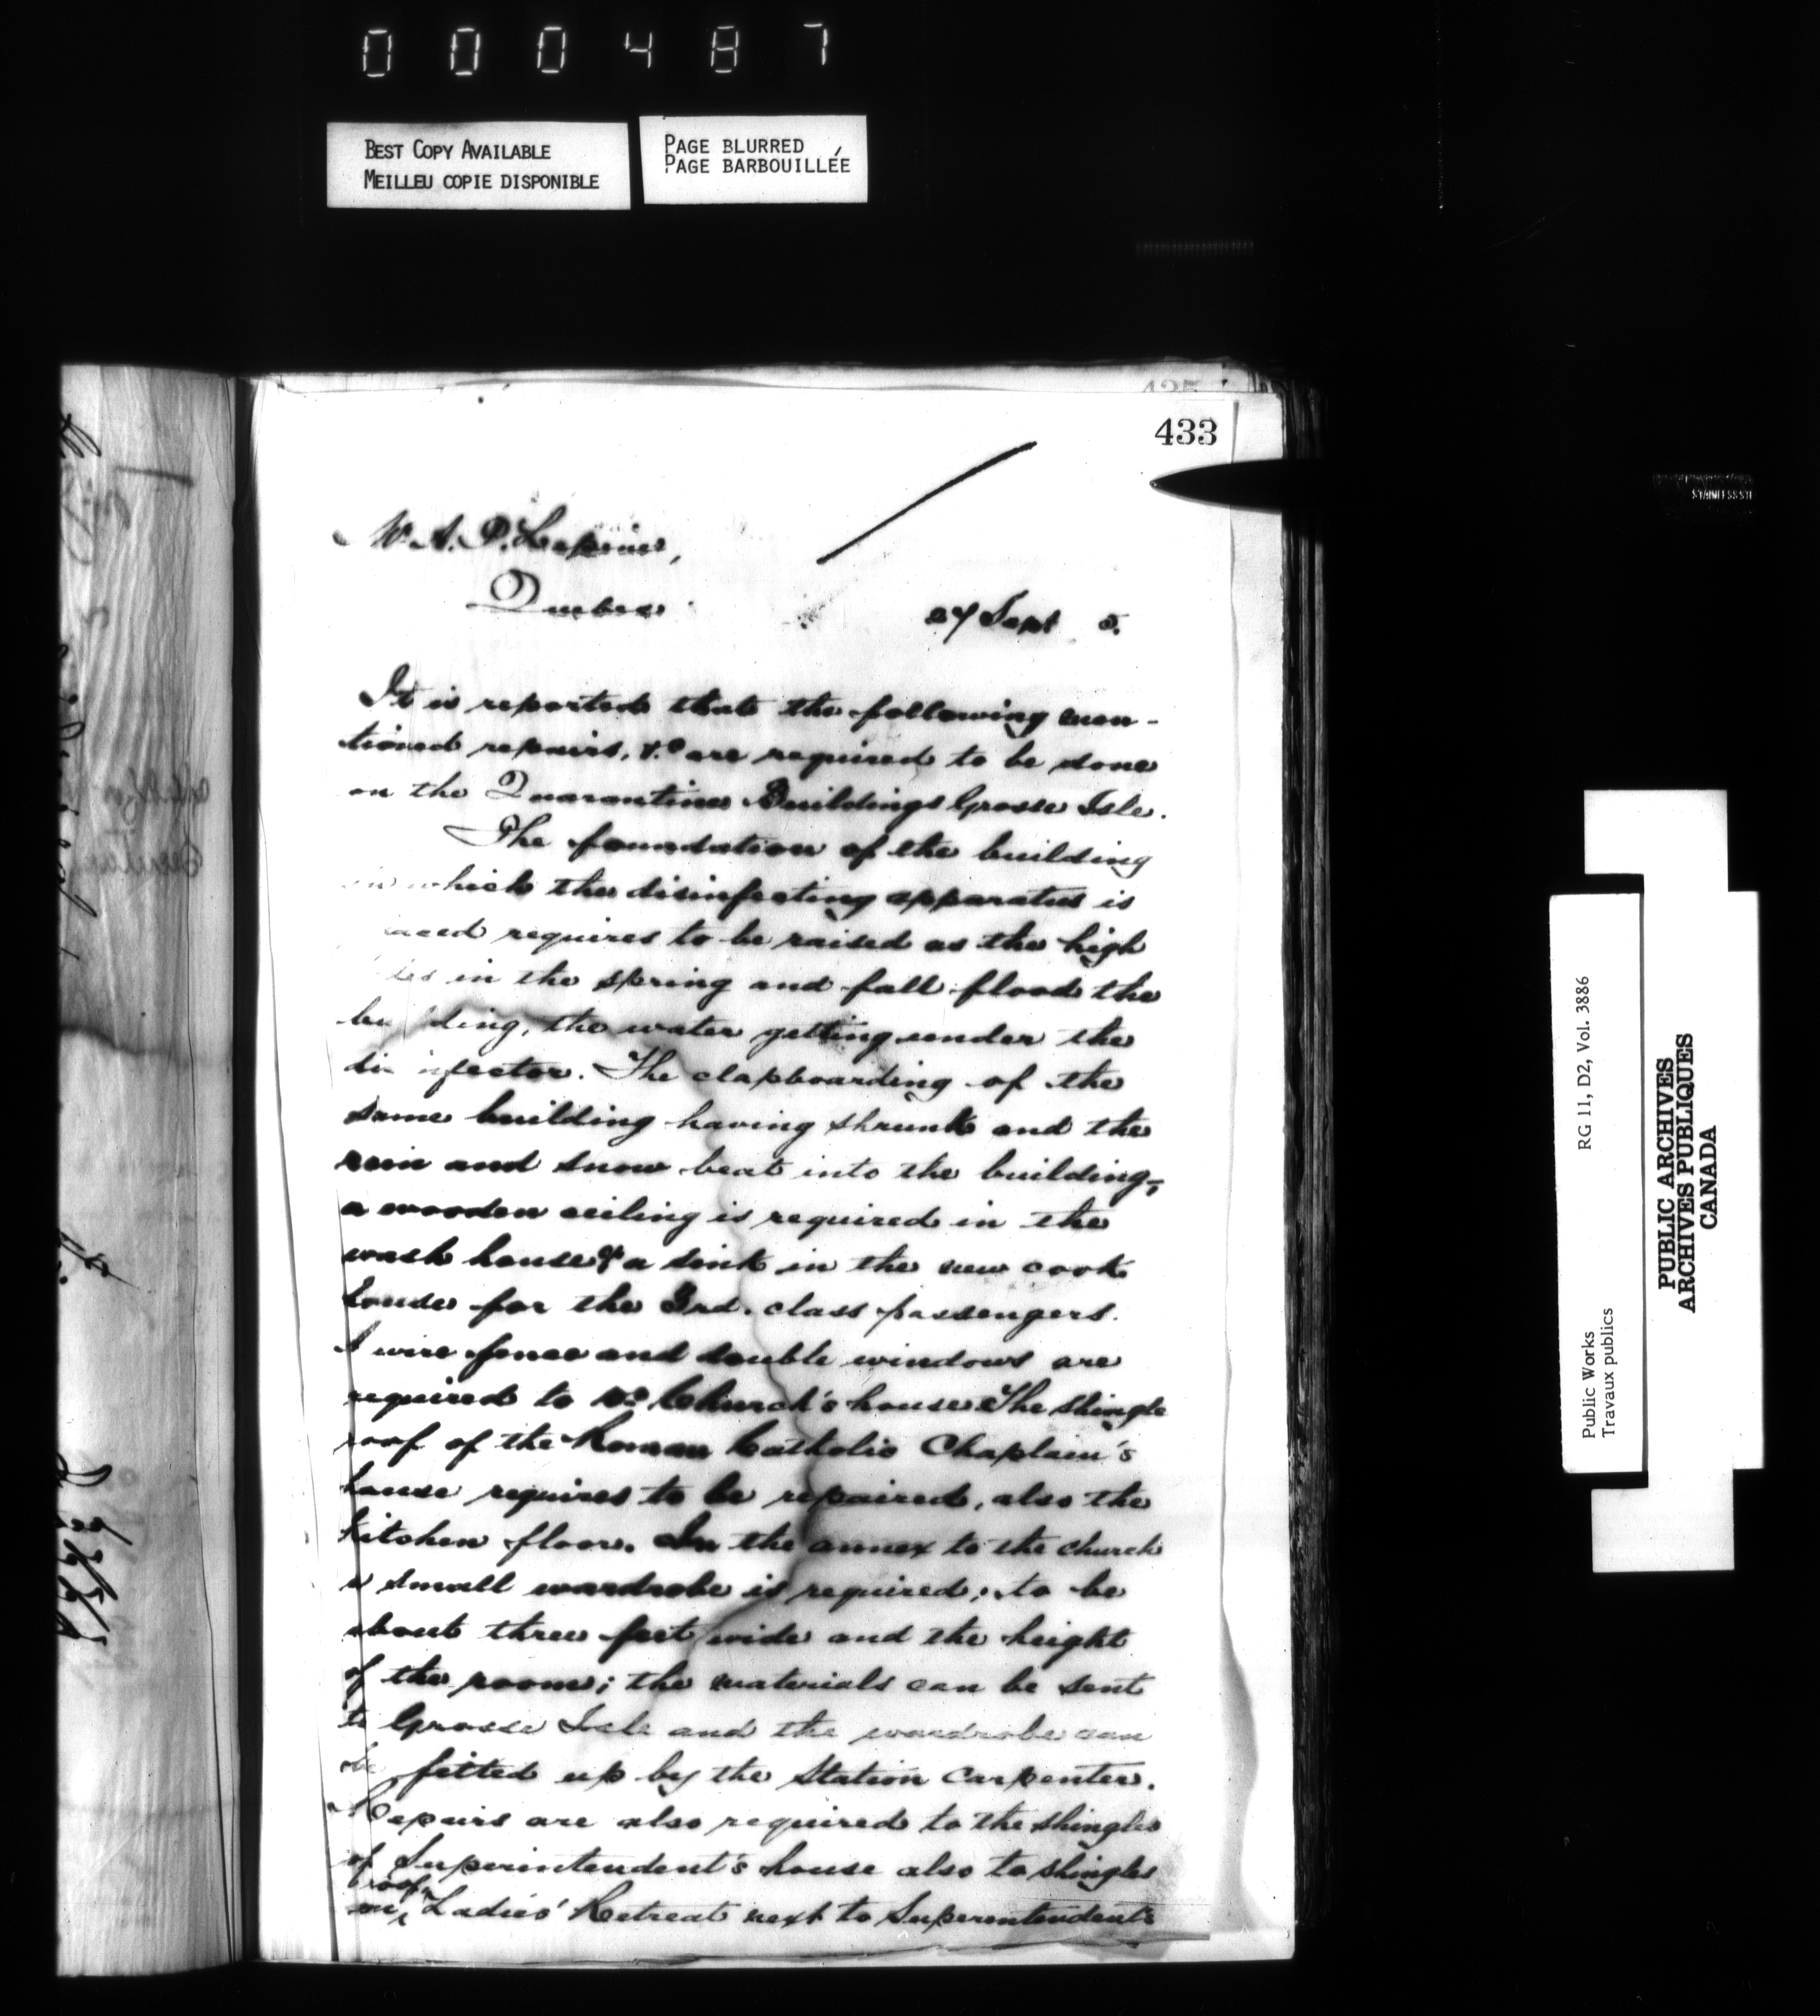 000487
BEST COPY AVAILABLE
MEILLEU COPIE DISPONIBLE
PAGE BLURRED
PAGE BARBOUILLÉE
433
A. P. Lepine,
Quebec
27 Sept 5.
It is reported that the following men-
tioned repairs, &c are required to be done
on the Quarantine Buildings Grosse Isle.
The foundation of the building
in which the disinfecting apparatus is
aced requires to be raised as the high
des in the spring and fall flood the
bu lding, the water getting under the
dis nfector. The clapboarding of the
same building having shrunk and the
rain and snow beat into the building,
a wooden ceiling is required in the
wash house & a sink in the new cook
house for the 3rd. class passengers.
A wire fence and double windows are
required to Mr Church's house. The shingle
roof of the Roman Catholic Chaplain's
house requires to be repaired, also the
kitchen floor. In the annex to the church
a small wardrobe is required; to be
about three feet wide and the height
of the room; the materials can be sent
to Grosse Isle and the wardrobe can
be fitted up by the Station Carpenter.
Repairs are also required to the shingles
of Superintendent's house also to shingles
on roof Ladies' Retreat next to Superintendent's
STAINLESS ST
Public Works RG 11, D2, Vol. 3886
Travaux publics
PUBLIC ARCHIVES
ARCHIVES PUBLIQUES
CANADA